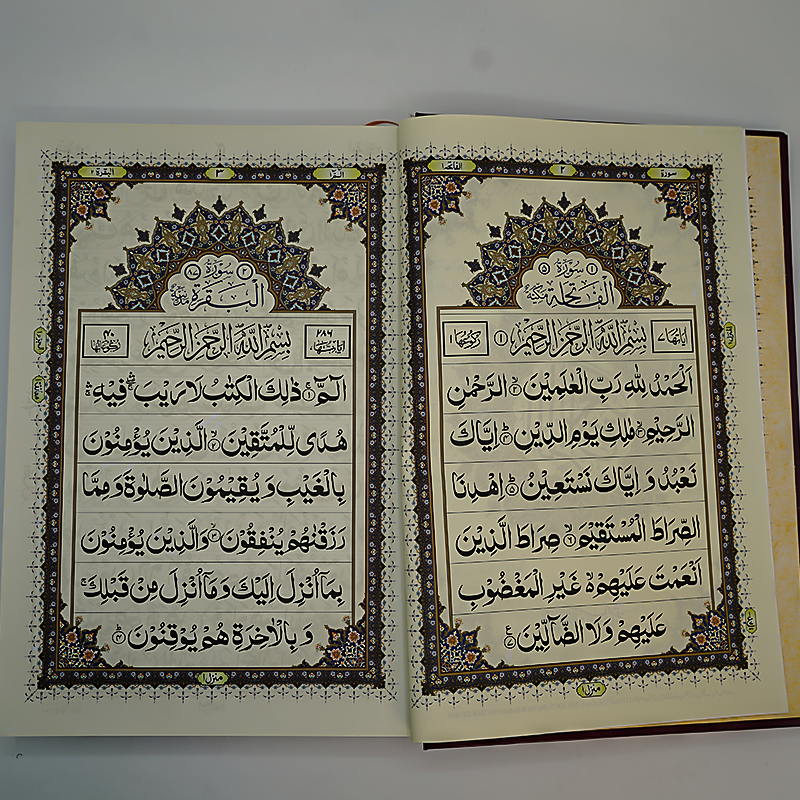 سورة
٢
الفاتحة ١
١ سورة ٥
الفاتحة مكية
اياتها ٧
بِسْمِ اللّٰهِ الرَّحْمٰنِ الرَّحِيْمِ ١
ركوعها ١
اَلْحَمْدُ لِلّٰهِ رَبِّ الْعٰلَمِيْنَ ۙ‏﴿۲﴾ الرَّحْمٰنِ
الرَّحِيْمِ ۙ‏﴿۳﴾ مٰلِكِ يَوْمِ الدِّيْنِ ؕ‏﴿۴﴾ اِيَّاكَ
نَعْبُدُ وَ اِيَّاكَ نَسْتَعِيْنُ ؕ‏﴿۵﴾ اِهْدِنَا
الصِّرَاطَ الْمُسْتَقِيْمَ ۙ‏﴿۶﴾ صِرَاطَ الَّذِيْنَ
اَنْعَمْتَ عَلَيْهِمْ ۙ۬ غَيْرِ الْمَغْضُوْبِ
عَلَيْهِمْ وَلَا الضَّآلِّيْنَ ﴿۷﴾ ع
منزل ١
الٓمّٓ ١
٣
البقرة ٢
٢ سورة
البقرة مدنية
٢٨٦ اياتها
بِسْمِ اللّٰهِ الرَّحْمٰنِ الرَّحِيْمِ
٤٠ ركوعاتها
الٓمّٓ ۚ‏﴿۱﴾ ذٰلِكَ الْكِتٰبُ لَا رَيْبَ ۛۖۚ فِيْهِ ۛۚ
هُدًى لِّلْمُتَّقِيْنَ ۙ‏﴿۲﴾ الَّذِيْنَ يُؤْمِنُوْنَ
بِالْغَيْبِ وَ يُقِيْمُوْنَ الصَّلٰوةَ وَ مِمَّا
رَزَقْنٰهُمْ يُنْفِقُوْنَ ۙ‏﴿۳﴾ وَالَّذِيْنَ يُؤْمِنُوْنَ
بِمَآ اُنْزِلَ اِلَيْكَ وَ مَآ اُنْزِلَ مِنْ قَبْلِكَ ۚ
وَ بِالْاٰخِرَةِ هُمْ يُوْقِنُوْنَ ؕ‏﴿۴﴾
منزل ١